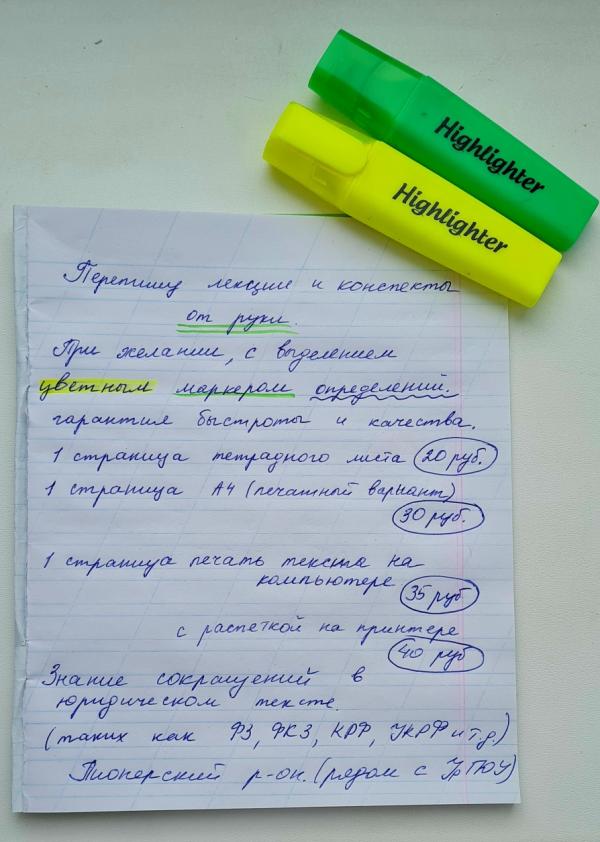 Highlighter
Highlighter
Перепишу лекции и конспекты
от руки.
При желании, с выделением
цветным маркером определений.
гарантия быстроты и качества.
1 страница тетрадного листа 20 руб.
1 страница А4 (печатный вариант)
30 руб.
1 страница печать текста на
компьютере
35 руб
с распеткой на принтере
40 руб
Знание сокращений в
юридическом тексте.
(таких как ФЗ, ФКЗ, КРФ, УКРФ и т.д.)
Пионерский р-он. (рядом с УрГЮУ)